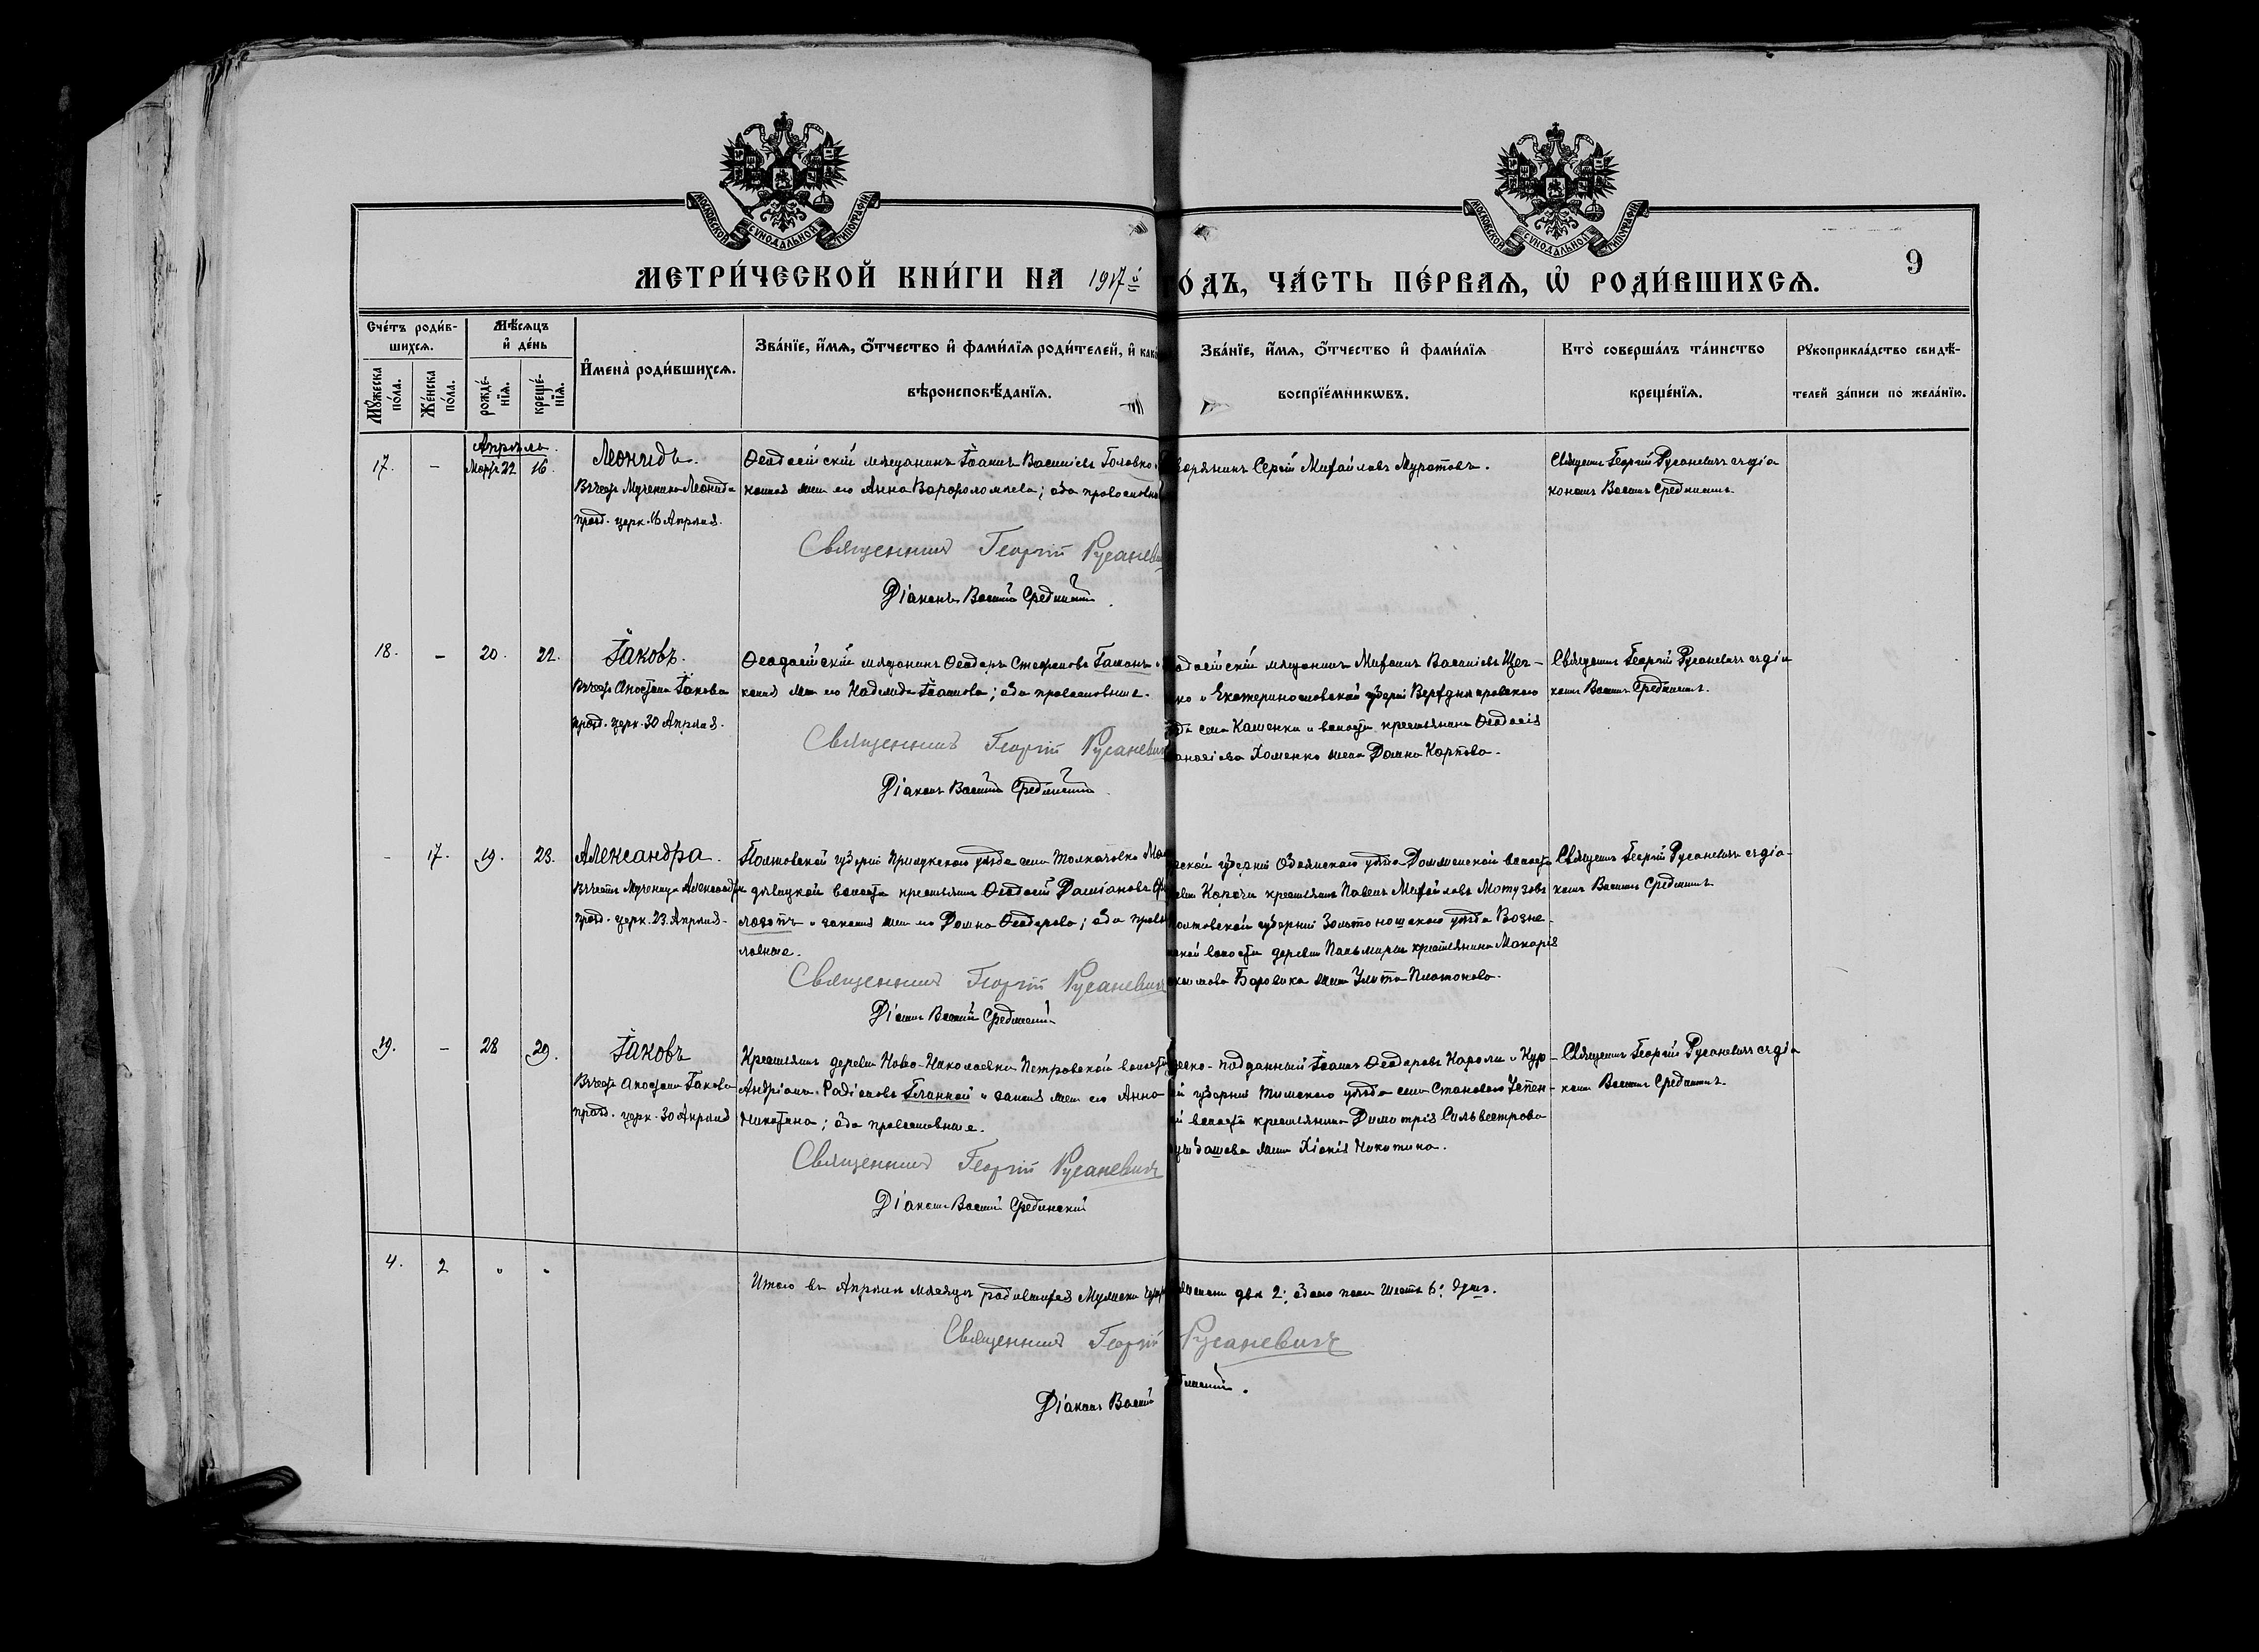 МОСКОВСКОЙ СУНОДАЛЬНОЙ ТИПОГРАФІИ
МОСКОВСКОЙ СУНОДАЛЬНОЙ ТИПОГРАФІИ
9
МЕТРИ́ЧЕСКОЙ КНИ́ГИ НА 1917й
О́ДЪ, ЧА́СТЬ ПЕ́РВАѦ, Ѡ҆ РОДИ́ВШИХСѦ.
Сче́тъ роди́в-
шихсѧ.
Мꙋ́жеска по́ла.
Же́нска по́ла.
Мѣ́сѧцъ
и҆ де́нь
рожде́-нїѧ.
креще́-нїѧ.
И҆мена̀ роди́вшихсѧ.
Зва́нїе, и҆́мѧ, ѻ҆́тчество и҆ фами́лїѧ роди́телей, и҆ како
вѣроисповѣ́данїѧ.
Зва́нїе, и҆́мѧ, ѻ҆́тчество и҆ фами́лїѧ
воспрїе́мникѡвъ.
Кто̀ соверша́лъ та́инство
креще́нїѧ.
Рꙋкоприкла́дство свидѣ́-
телей за́писи по жела́нїю.
Апрѣль.
17. – Мартъ 22 16.
Леонидъ.
Въ честь Мученика Леонида
празд. церк. 16 Апрѣля.
Ѳеодосійскій мѣщанинъ Іоаннъ Васильевъ Головко
конная жена его Анна Варфоломеева; оба православны
Священникъ Георгій Русаневи
Діаконъ Василій Срединскій.
ворянинъ Сергій Михайловъ Муратовъ.
Священ. Георгій Русаневичъ съ діа
кономъ Василіемъ Срединскимъ.
18. – 20. 22.
Іаковъ.
Въ честь Апостола Іакова
празд. церк. 30 Апрѣля.
Ѳеодосійскій мѣщанинъ Ѳеодоръ Стефановъ Гаманъ и
конная жена его Надежда Іоаннова; оба православные.
Священникъ Георгій Русаневич
Діаконъ Василій Срединскій.
одосійскій мѣщанинъ Михаилъ Васильевъ
ко и Екатеринославской губерніи Верхнеднѣпровскаго
да села Кашенки и волости крестьянина Ѳеодосія
Хоменко жена Домна Карпова.
Священникъ Георгій Русаневичъ съ діа
кономъ Василіемъ Срединскимъ.
– 17. 19. 23.
Александра.
Въ честь Мученицы Александры
празд. церк. 23 Апрѣля.
Полтавской губерніи Прилукскаго уѣзда села Толкачевки
дѣвицкой волости крестьянинъ Ѳеодосій Даміановъ
и законная жена его Домна Ѳеодорова; оба право
славные.
Священникъ Георгій Русаневич
Діаконъ Василій Срединскій
ской губерніи Обоянскаго уѣзда волости
крестьянинъ Павелъ Михайловъ Мотузовъ
олтавской губерніи Золотоношскаго уѣзда Возне-
ской волости деревни Пальмиры крестьянина Макарія
Боровика жена Улита Платонова.
Священникъ Георгій Русаневичъ съ діа-
кономъ Василіемъ Срединскимъ
19. – 28 29.
Іаковъ
Въ честь Апостола Іакова
празд. церк. 30 Апрѣля
Крестьянинъ деревни Ново-Николаевки Петровской волости
Андріанъ Радіоновъ и законная жена его Анна
Никитина; оба православные.
Священникъ Георгій Русаневичъ
Діаконъ Василій Срединскій
ско-подданный Іоаннъ Ѳеодоровъ Кароли и Кур-
ой губерніи Тимскаго уѣзда села Становаго Успен-
й волости крестьянина Димитрія Сильвестрова
жена Хіонія Никитина.
Священникъ Георгій Русаневичъ съ діа
кономъ Василіемъ Срединскимъ.
4. 2 " "
Итого въ Апрѣлѣ мѣсяцѣ родившихся Мужеска
женска двѣ 2; обоего пола шесть 6. душъ.
Священникъ Георгій Русаневичъ
Діаконъ Василій